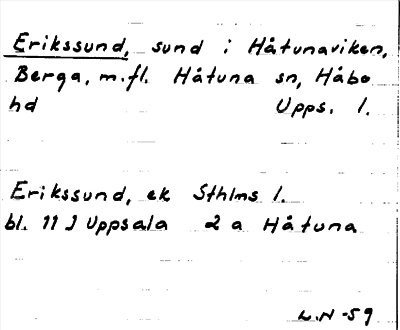 Erikssund, sund i Håtunaviken,
Berga, m.fl. Håtuna sn, Håbo
hd Upps. l.
Erikssund, ek Sthlms l.
bl. 11 J Uppsala 2 a Håtuna
L.N -59